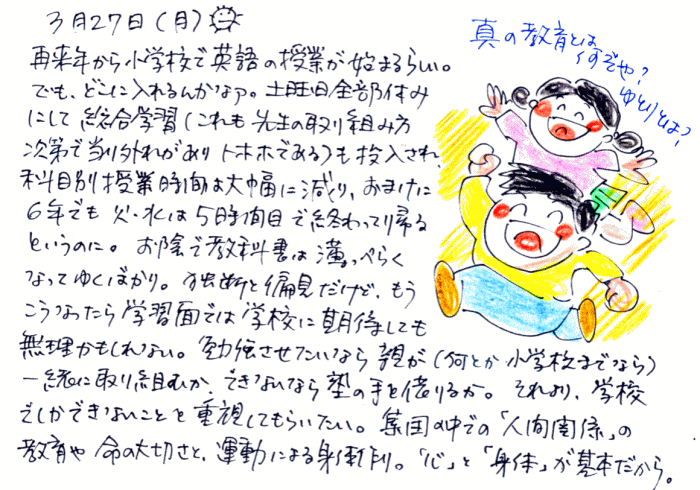 3月27日(月)
真の教育とは
何ぞや?
ゆとりとは?
再来年から小学校で英語の授業が始まるらしい。
でも、どこに入れるんかなァ。土曜日全部休み
にして総合学習(これも先生の取り組み方
次第で当り外れがありトホホである)も投入され、
科目別授業時間は大幅に減り、おまけに
6年でも火・水は5時間目で終わって帰る
というのに。お陰で教科書は薄っぺらく
なってゆくばかり。独断と偏見だけど、もう
こうなったら学習面では学校に期待しても
無理かもしれない。勉強させたいなら親が(何とか小学校までなら)
一緒に取り組むか、できないなら塾の手を借りるか。それより、学校
でしかできないことを重視してもらいたい。集団の中での「人間関係」の
教育や命の大切さと、運動による身体作り。「心」と「身体」が基本だから。